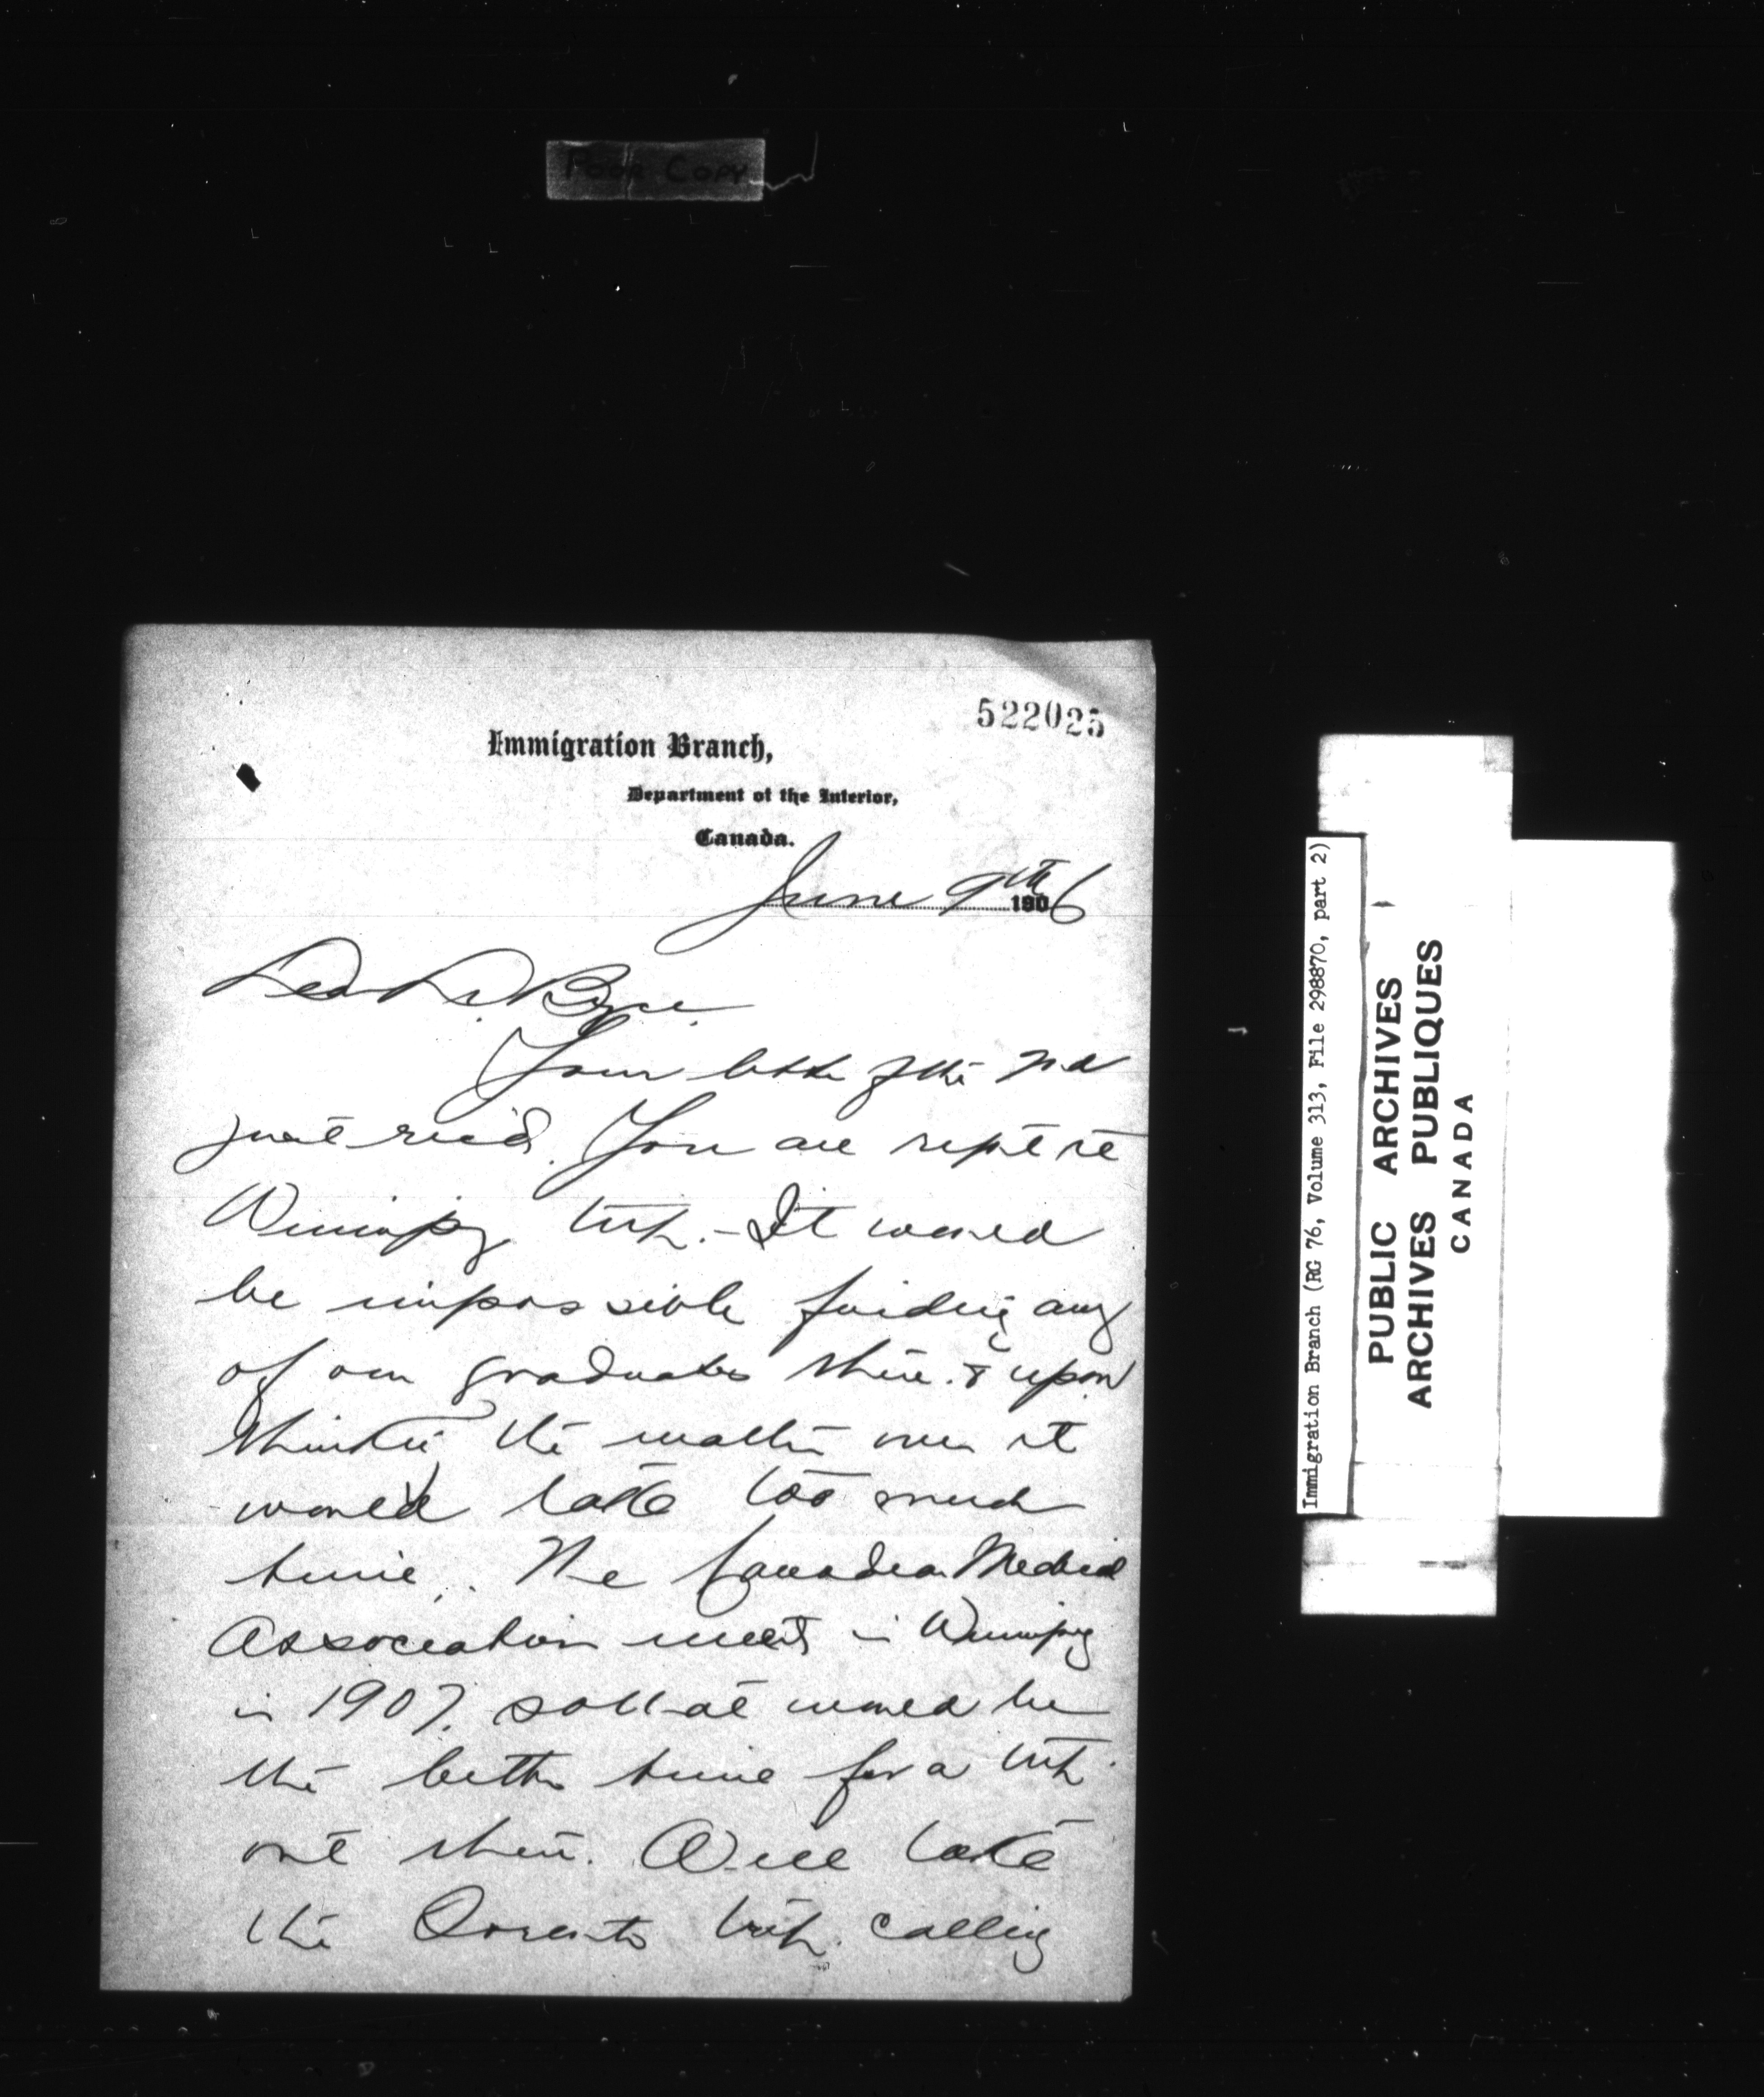 Poor Copy
522025
Immigration Branch,
Department of the Interior,
Canada.
June 9th 1906
Dear Dr. Bryce.
Your letter of the
just rec'd. You are right re
Winnipeg trip. - It would
be impossible finding any
of our graduates there. & upon
thinking the matter over it
would take too much
time. The Canadian Medical
Association meets in Winnipeg
in 1907. so that would be
the better time for a trip
out there. Will take
the Toronto trip. calling
Immigration Branch (RG 76, Volume 313, File 298870, part 2)
PUBLIC ARCHIVES
ARCHIVES PUBLIQUES
CANADA